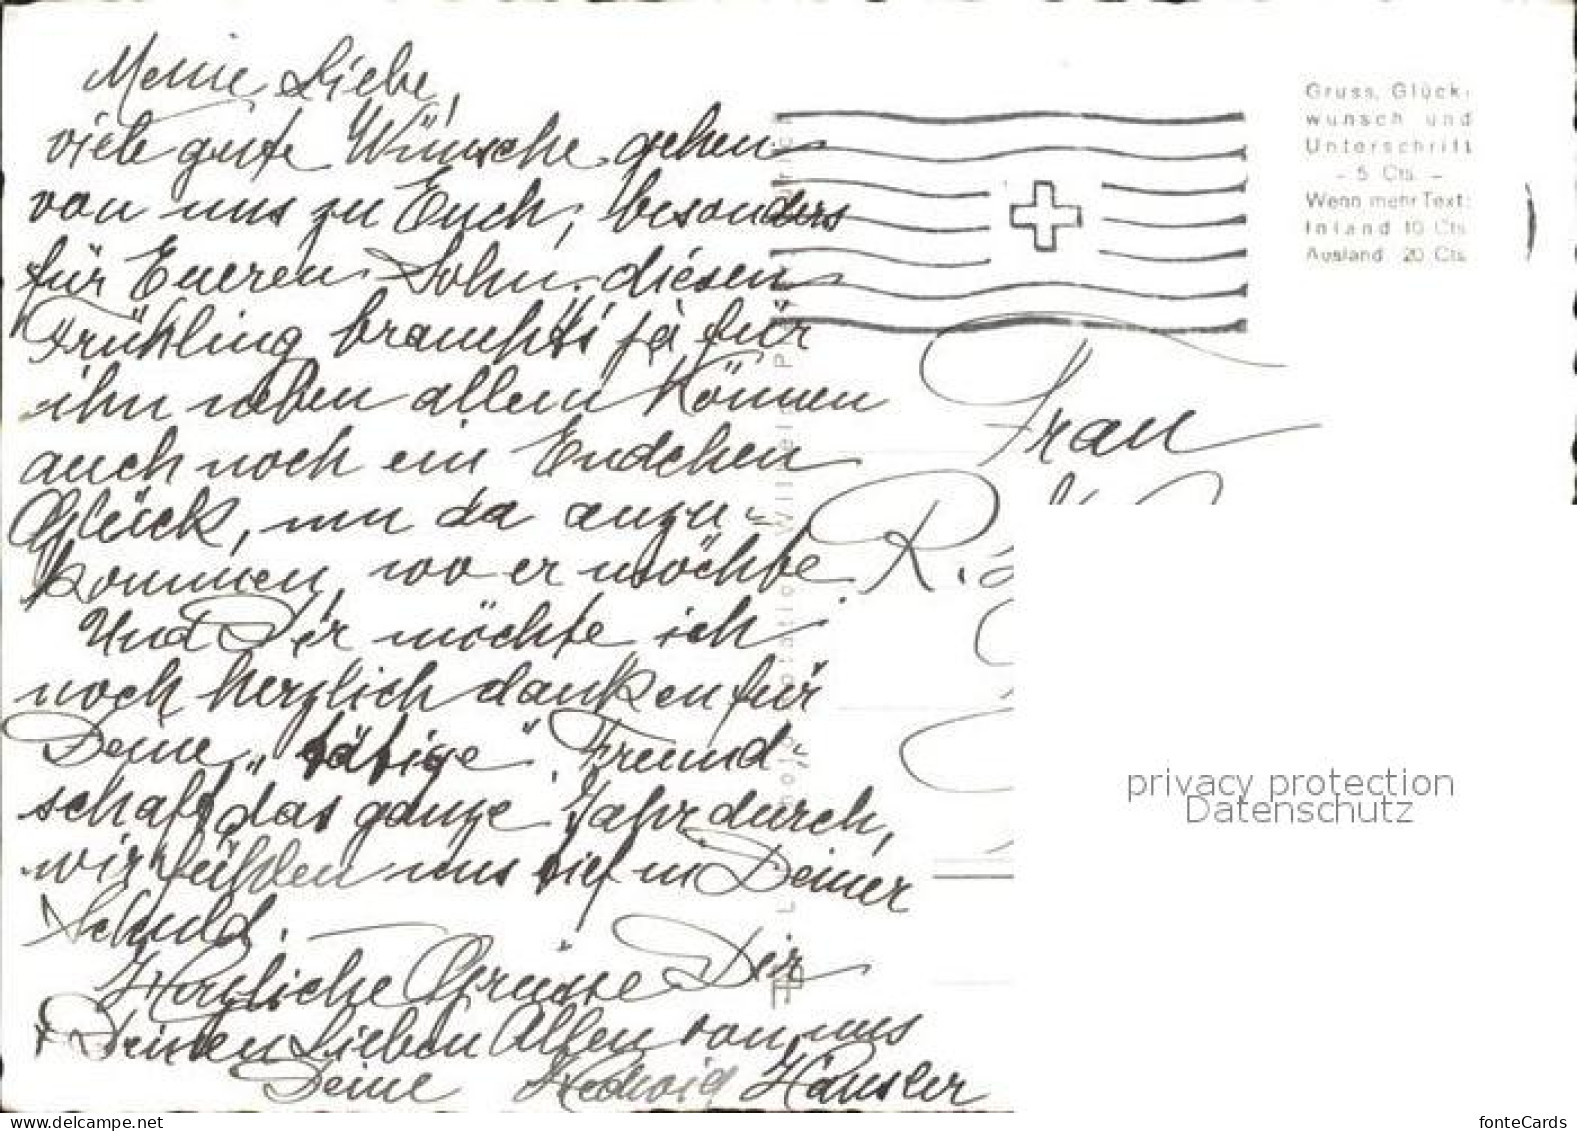 Meine Liebe,
viele gute Wünsche gehen
von uns zu Euch, besonders
für Eueren Sohn, diesen
Frühling braucht's ja für
ihn neben allem Können
auch noch ein Endchen
Glück, um da anzu-
kommen, wo er möchte.
Und Dir möchte ich
noch herzlich danken für
Deine „tätige" Freund-
schaft das ganze Jahr durch,
wir fühlen uns tief in Deiner
Schuld.
Herzliche Grüsse Dir
+ Deinen Lieben Allen von uns
Deine Hedwig Hänsler
Gruss, Glück-
wunsch und
Unterschrift
- 5 Cts. -
Wenn mehr Text:
Inland 10 Cts.
Ausland 20 Cts.
Frau
privacy protection
Datenschutz
www.delcampe.net
fonteCards